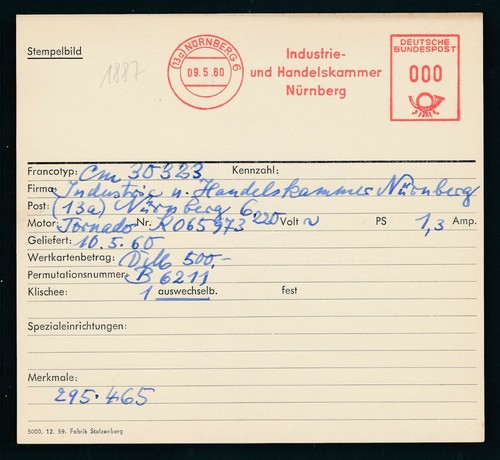 Stempelbild
1887
(13a) NÜRNBERG 6
09.5.60
Industrie-
und Handelskammer
Nürnberg
DEUTSCHE
BUNDESPOST
000
Francotyp: Cm 30323 Kennzahl:
Firma: Industrie u. Handelskammer Nürnberg
Post: (13a) Nürnberg 6
Motor: Tornado Nr. K065973 220 Volt ~ PS 1,3 Amp.
Geliefert: 10.5.60
Wertkartenbetrag: DM 500,-
Permutationsnummer: B 6211
Klischee: 1 auswechselb. fest
Spezialeinrichtungen:
Merkmale:
295.465
5000. 12. 59. Fabrik Stolzenberg